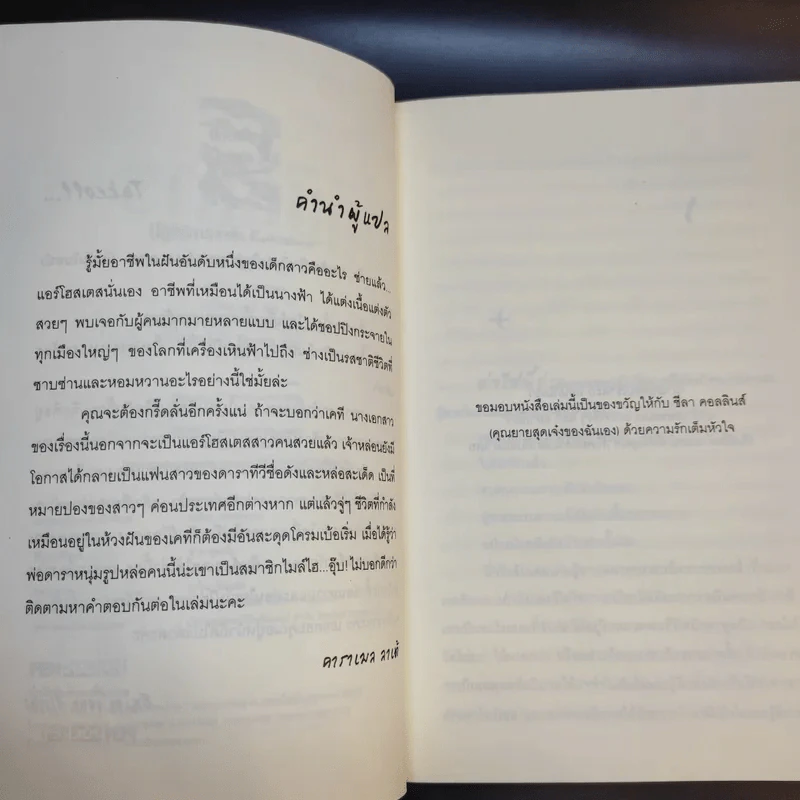 คำนำผู้แปล
รู้มั้ยอาชีพในฝันอันดับหนึ่งของเด็กสาวคืออะไร ช่ายแล้ว...
แอร์โฮสเตสนั่นเอง อาชีพที่เหมือนได้เป็นนางฟ้า ได้แต่งเนื้อแต่งตัว
สวยๆ พบเจอกับผู้คนมากมายหลายแบบ และได้ชอปปิงกระจายใน
ทุกเมืองใหญ่ๆ ของโลกที่เครื่องเหินฟ้าไปถึง ช่างเป็นรสชาติชีวิตที่
ซาบซ่านและหอมหวานอะไรอย่างนี้ใช่มั้ยล่ะ
คุณจะต้องกรี๊ดลั่นอีกครั้งแน่ ถ้าจะบอกว่าเคที นางเอกสาว
ของเรื่องนี้นอกจากจะเป็นแอร์โฮสเตสสาวคนสวยแล้ว เจ้าหล่อนยังมี
โอกาสได้กลายเป็นแฟนสาวของดาราทีวีชื่อดังและหล่อสะเด็ด เป็นที่
หมายปองของสาวๆ ค่อนประเทศอีกต่างหาก แต่แล้วจู่ๆ ชีวิตที่กำลัง
เหมือนอยู่ในห้วงฝันของเคทีก็ต้องมีอันสะดุดโครมเบ้อเริ่ม เมื่อได้รู้ว่า
พ่อดาราหนุ่มรูปหล่อคนนี้น่ะเขาเป็นสมาชิกไมล์ไฮ...อุ๊บ! ไม่บอกดีกว่า
ติดตามหาคำตอบกันต่อในเล่มนะคะ
คาราเมล ลาเต้
ขอมอบหนังสือเล่มนี้เป็นของขวัญให้กับ ชีลา คอลลินส์
(คุณยายสุดเจ๋งของฉันเอง) ด้วยความรักเต็มหัวใจ